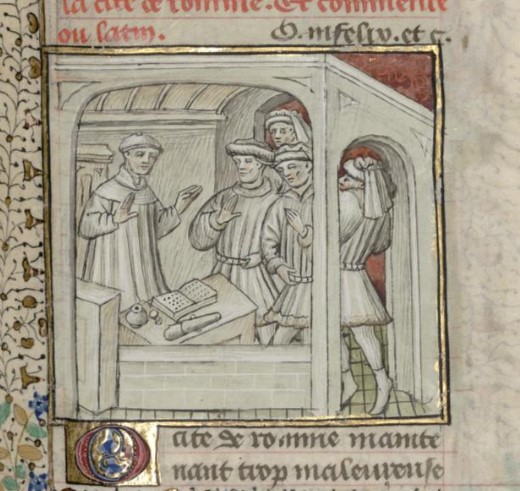 la cite de romme. Et commence
ou latin. O. infelix. et c.
cite de romme mainte
nant trop maleureuse